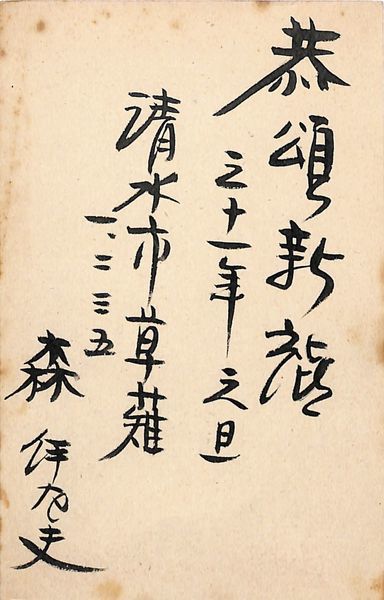 恭頌新禧
三十一年元旦
清水市草薙
一、二三五
森